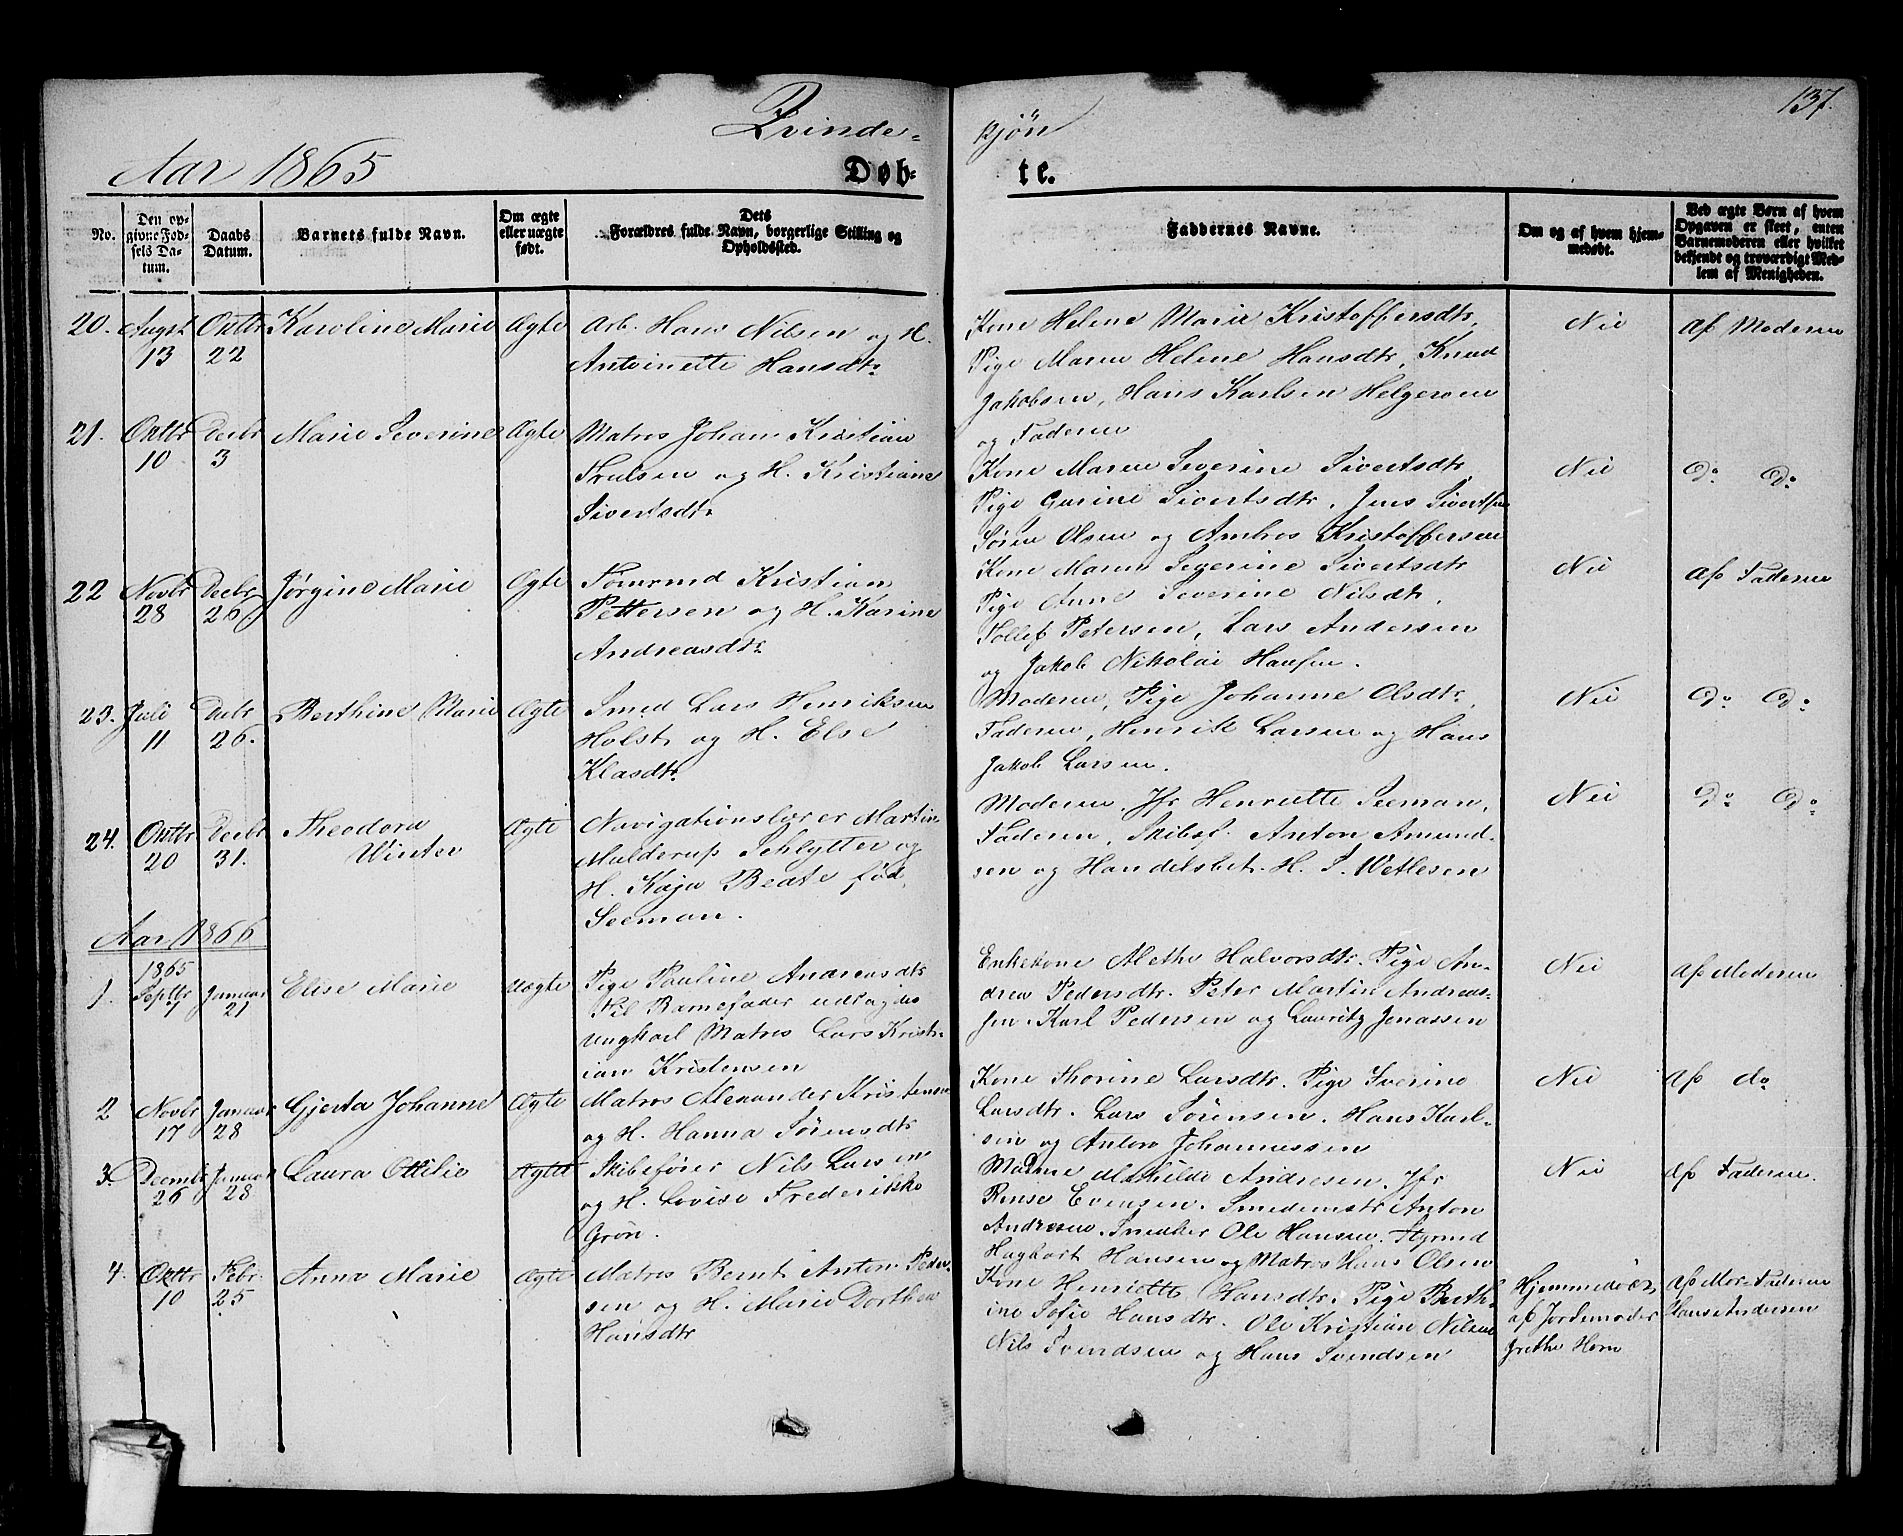 137.
Qvinde-
kjøn
Aar 1865
Døb-
te.
No.
Den op-
givne Fød-
sels Da-
tum.
Daabs
Datum.
Barnets fulde Navn.
Om ægte
eller uægte
født.
Dets
Forældres fulde Navn, borgerlige Stilling og
Opholdssted.
Faddernes Navne.
Om og af hvem hjem-
medøbt.
Ved ægte Børn af hvem
Opgaven er skeet, enten
Barnemoderen eller hvilket
bekjendt og troværdigt Med-
lem af Menigheden.
20.
Augst
13
Oktbr
22
Karoline Marie
Ægte
Arb. Hans Nilsen og H.
Antoinette Hansdtr
Kone Helene Marie Kristoffersdtr,
Pige Maren Helene Hansdtr, Knud
Jakobsen, Hans Karlsen Helgeroen
og Faderen
Nei
af Moderen
21.
Oktbr
10
Decbr
3
Marie Severine
Ægte
Matros Johan Kristian
Trulsen og H. Kristiane
Sivertsdtr
Kone Maren Severine Sivertsdtr
Pige Gurine Sivertsdtr, Jens Sivertsen
Søren Olsen og Ambros Kristoffersen
Nei
Do Do
22
Novbr
28
Decbr
26.
Jørgine Marie
Ægte
Tømrmd Kristian
Pettersen og H. Karine
Andreasdtr
Kone Maren Severine Sivertsdtr
Pige Anne Severine Nilsdtr,
Tollef Petersen, Lars Andersen
og Jakob Nikolai Hansen.
Nei
af Faderen
23.
Juli
11
Decbr
26.
Berthine Marie
Ægte
Smed Lars Henriksen
Holst og H. Else
Klasdtr
Moderen, Pige Johanne Olsdtr,
Faderen, Henrik Larsen og Hans
Jakob Larsen.
Nei
Do Do
24.
Oktbr
20
Decbr
31.
Theodora
Winter
Ægte
Navigationslærer Martin
Mulderup Schlytter og
H. Kaja Beate fød
Seeman.
Moderen, Jfr Henriette Seeman,
Faderen, Skibsf. Anton Amund-
sen og Handelsbet. H. S. Wetlesen
Nei
Do Do
Aar 1866
1.
1865
Septbr
7
Januar
21
Elise Marie
Uægte
Pige Pauline Andreasdtr
Til Barnefader udlagdes
ungkarl Matros Lars Krist-
ian Kristensen
Enkekone Methe Halvorsdtr. Pige An-
drea Pedersdtr. Peter Martin Andreas-
sen. Karl Pedersen og Lauritz Jonassen
Nei
af Moderen
2
Novbr
17
Januar
28
Gjerta Johanne
Ægte
Matros Alexander Kristensen
og H. Hanna Sørensdtr
Kone Thorine Larsdtr. Pige Iverine
Larsdtr. Lars Sørensen. Hans Karl-
sen og Anton Johannessen
Nei
af do
3.
Decmbr
26
Januar
28
Laura Ottilie
Ægte
Skibsfører Nils Larsen
og H. Lovise Frederikke
Grøn.
Madme Mathilde Andresen. Jfr
Rense Evensen. Smedemstr Anton
Andresen. Snedker Ole Hansen. Styrmd
Haghart Hansen og Matros Hans Olsen
Nei
af Faderen.
4.
Oktbr
10
Febr.
25
Anna Marie
Ægte
Matros Bernt Anton Peder-
sen og H. Marie Dorthea
Hansdtr
Kone Henriette Hansdtr. Pige Berth-
ine Sofie Hansdtr. Ole Kristian Nilsen
Nils Svendsen og Hans Svendsen
Hjemmedøbt
af Jordemoder
Grethe Horn
af Mor-Faderen
Hans Andersen